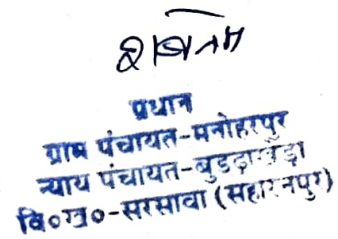 शबनम
प्रधान
ग्राम पंचायत-मनोहरपुर
न्याय पंचायत-बुडढाखेड़ा
वि०ख०-सरसावा (सहारनपुर)